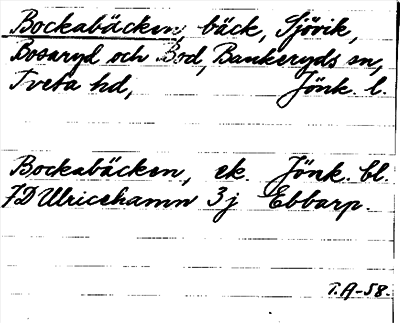 Bockabäcken, bäck, Sjövik,
Bosaryd och Bod, Bankeryds sn,
Tveta hd, Jönk. l.
Bockabäcken, ek. Jönk. bl.
7D Ulricehamn 3j Ebbarp.
T.A-58.